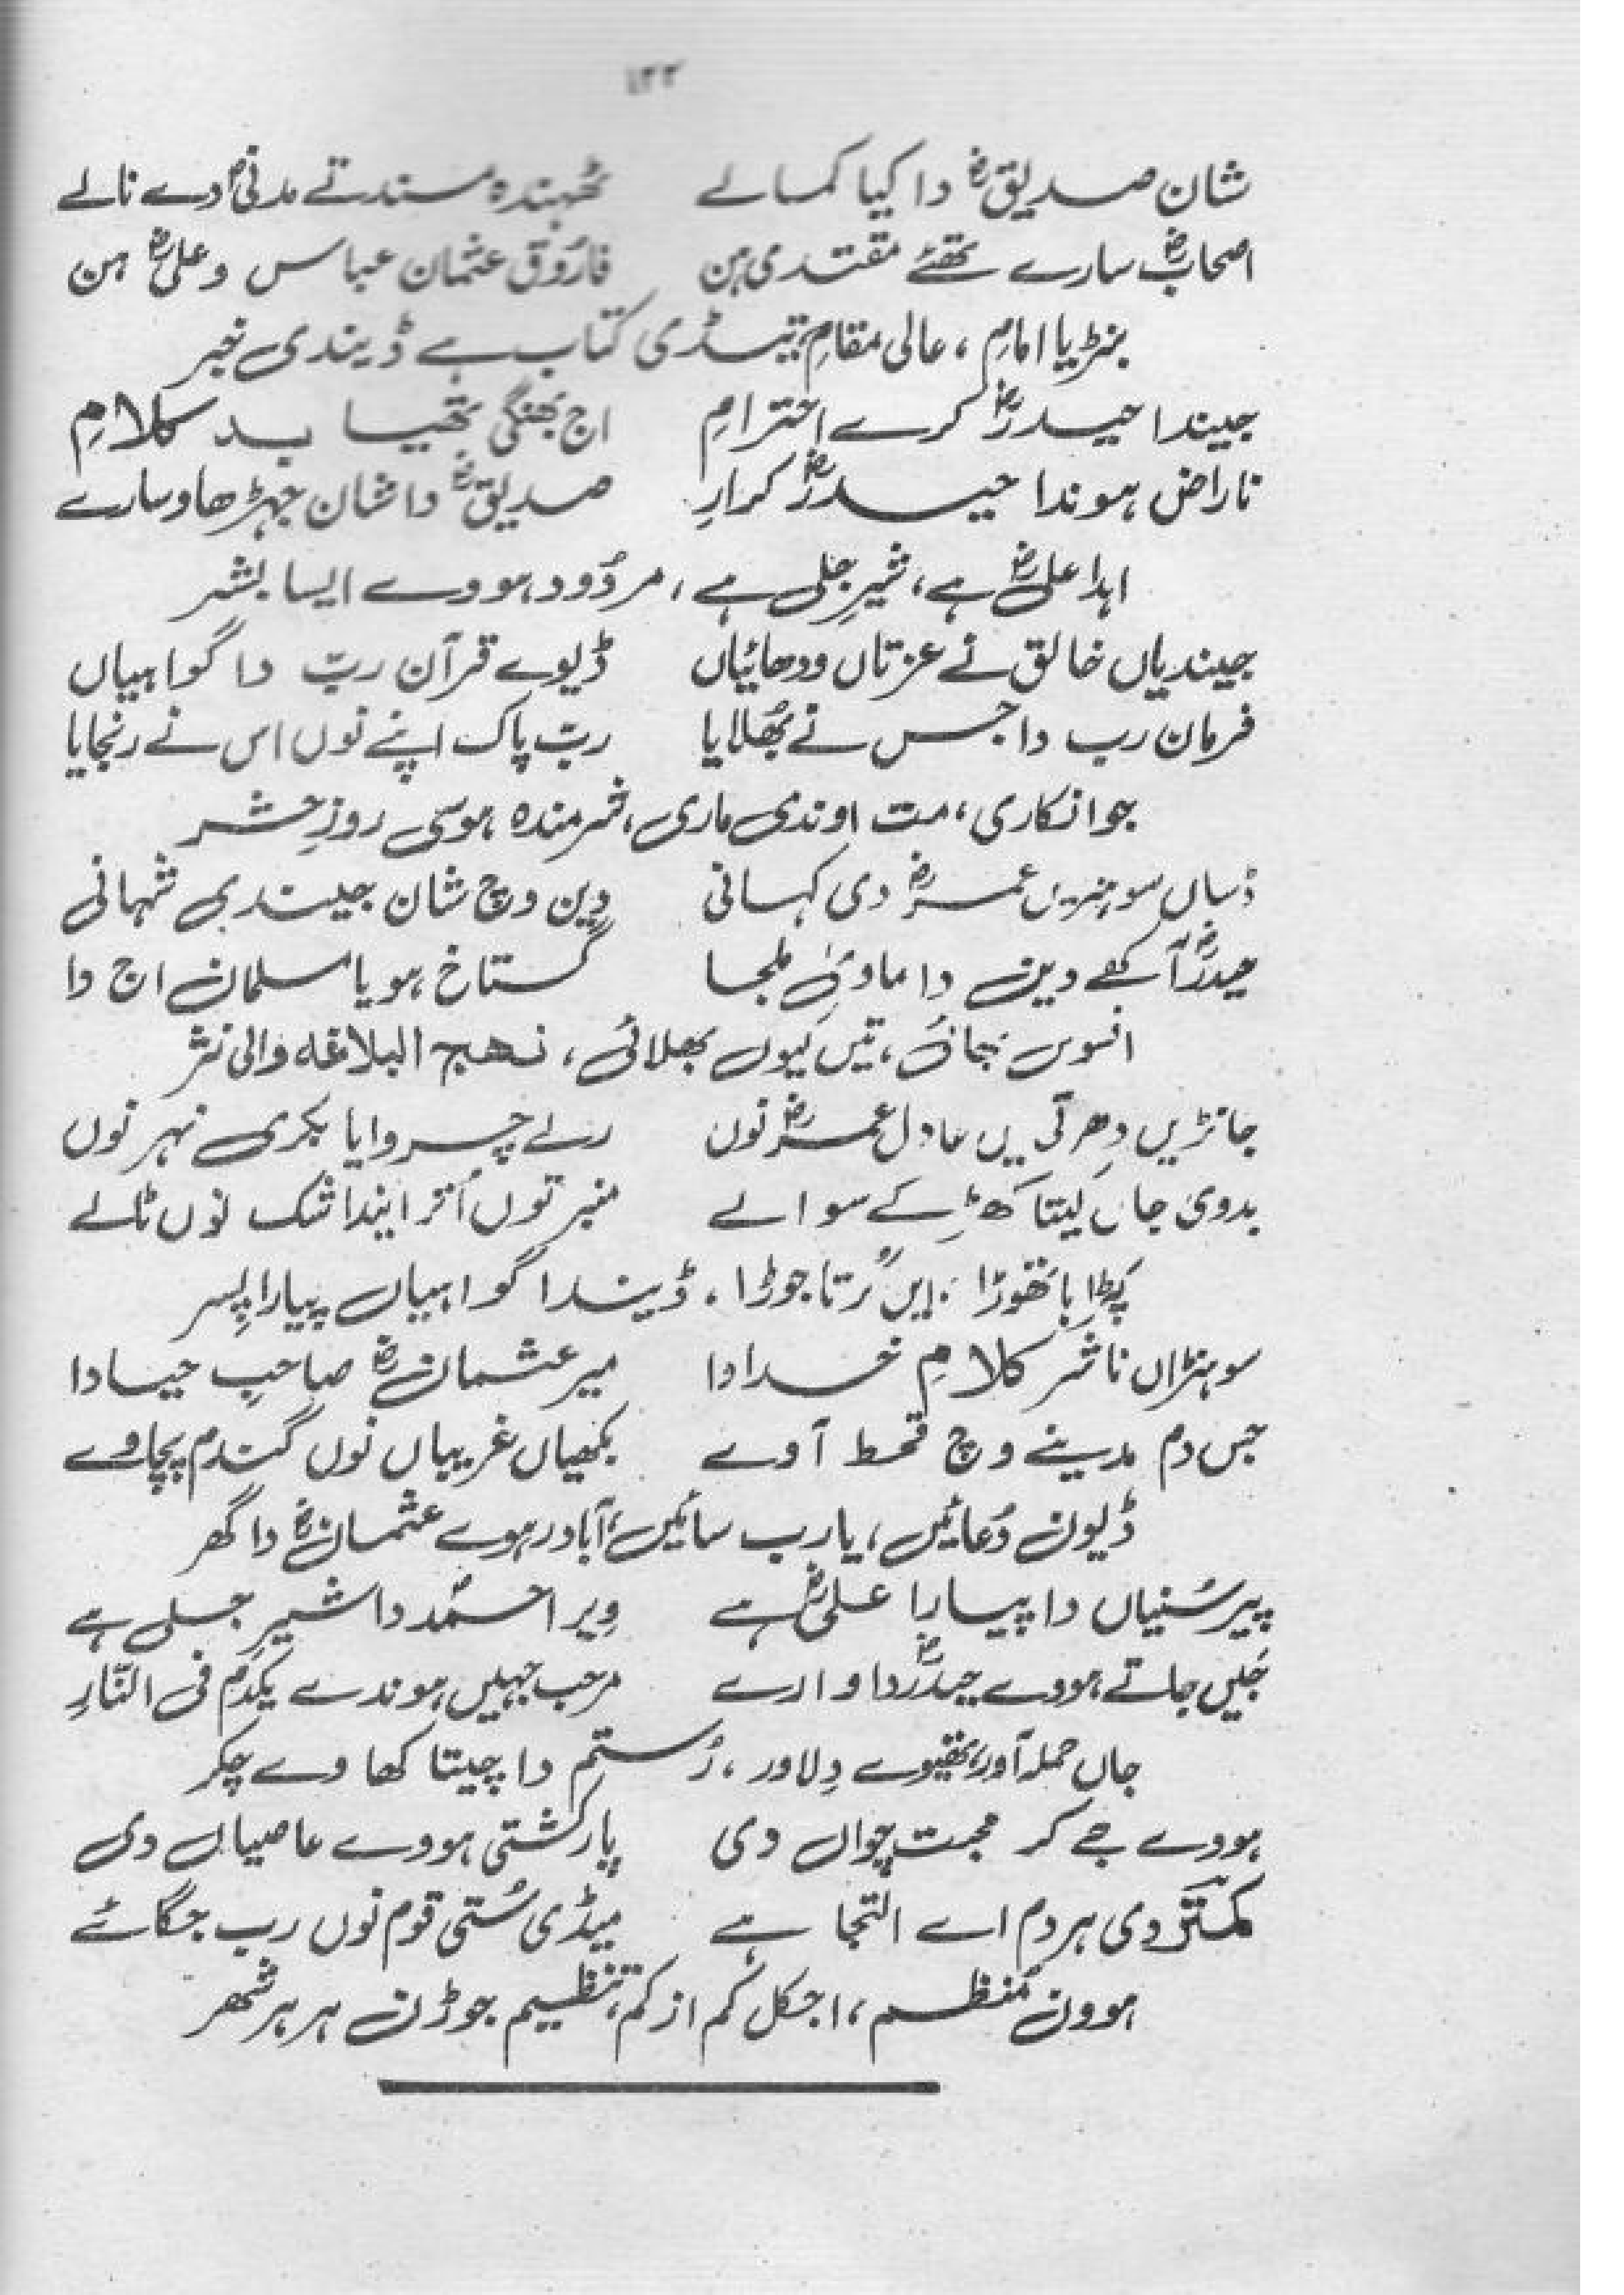 ۱۲۲
شان صدیقؓ دا کیا کمالے ٹھہندہ مسندتے مدنیؐ دے نالے
اصحابؓ سارے تھئے مقتدی ہن فاروق عثمان عباس و علیؓ ہن
بنڑیا امامِ، عالی مقامِ تیڈی کتاب ہے ڈیندی خبر
جیندا حیدرؓ کرے احترامِ اج بھنگی تھیا بد کلامِ
ناراض ہوندا حیدرؓ کرارِ صدیقؓ دا شان جہڑھا وسارے
اہدا علیؓ ہے، شیرِ جلی ہے، مردُود ہووے ایسا بشر
جیندیاں خالق نے عزتاں ودھائیاں ڈیوے قرآن ربّ دا گواہیاں
فرمان رب دا جس نے بُھلایا ربّ پاک اپنے نوں اس نے رنجایا
جو انکاری، مت اوندی ماری، شرمندہ ہوسی روزِ حشر
ڈساں سوہنریں عمرؓ دی کہانی دِین وچ شان جیندی شہانی
حیدرؓ آکھے دین دا ماویٰ ملجا گستاخ ہویا مسلمان اج دا
افسوس بھائی، تیں کیوں بھلائی، نہج البلاغہ والی نثر
جانڑیں دِھرتی یں عادل عمرؓ نوں رلے چروایا بکری نہر نوں
بدوی جاں کیتا کھڑ کے سوالے منبر توں اُتر ایندا شک نوں ٹالے
کپڑا ہا تھوڑا، ایں کُرتا جوڑا۔ ڈیندا گواہیاں پیارا پسر
سوہنڑاں ناشر کلامِ خدا دا میر عثمانؓ صاحبِ حیا دا
جس دم مدینے وچ قحط آوے بکھیاں غریباں نوں گندم پچاوے
ڈیون دُعائیں، یا رب سائیں، آباد رہوے عثمانؓ دا گھر
پیر سُنیاں دا پیارا علیؓ ہے ویر احمدؐ دا شیرِ جلی ہے
جیں جاتے ہووے حیدرؓ دا وارے مرحب جہیں ہوندے یکدم فی النّارِ
جاں حملہ آور، تھیوے دِلاور، رُستم دا چیتا کھاوے چکر
ہووے جے کر محبت چواں دی پار کشتی ہووے عاصیاں دی
کمترؔ دی ہر دم اے التجا ہے میڈی سُتی قوم نوں رب جگائے
ہوون مُنظم، اجکل کم از کم، تنظیم جوڑن ہر ہر شہر